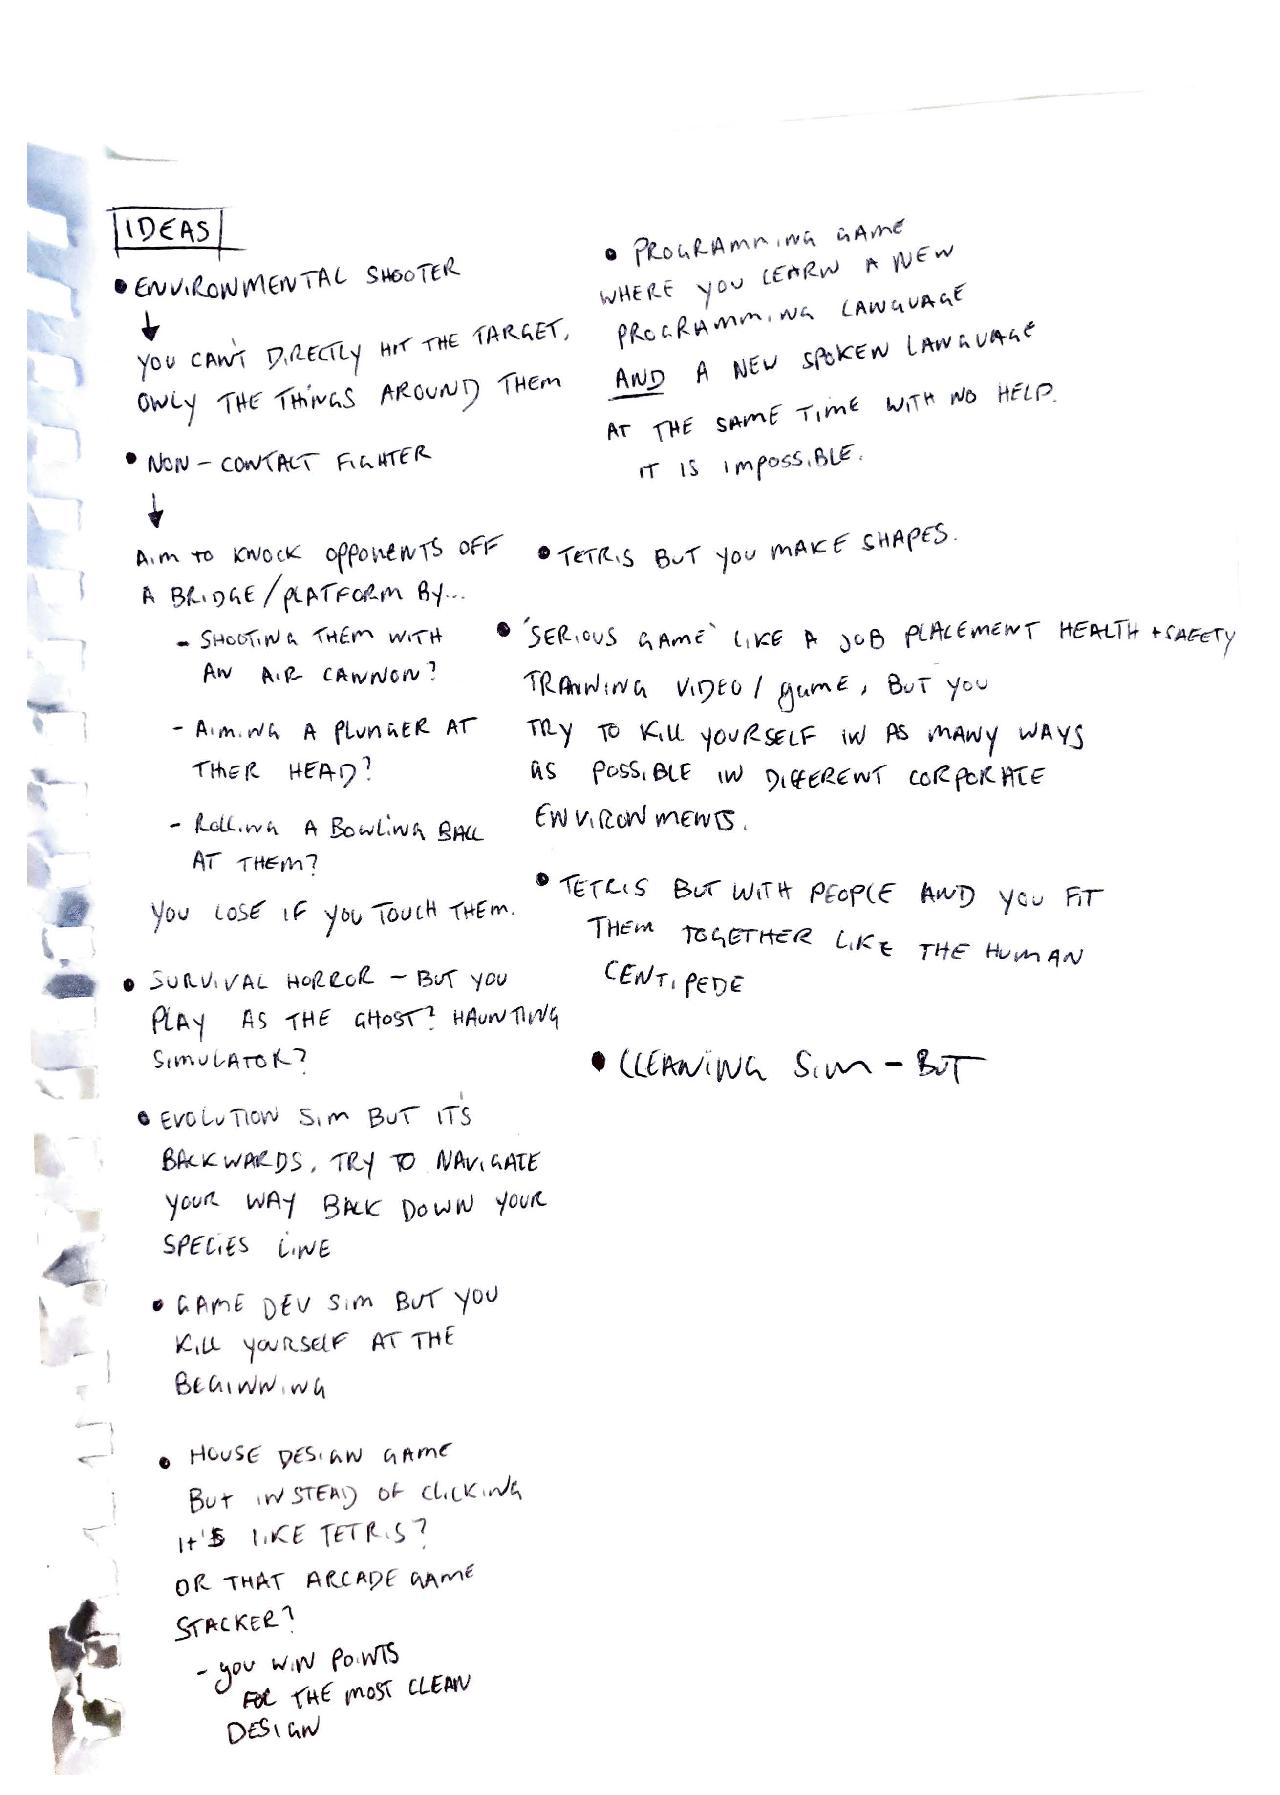 IDEAS
• ENVIRONMENTAL SHOOTER
↓
YOU CAN'T DIRECTLY HIT THE TARGET,
ONLY THE THINGS AROUND THEM
• NON - CONTACT FIGHTER
↓
AIM TO KNOCK OPPONENTS OFF
A BRIDGE/PLATFORM BY...
- SHOOTING THEM WITH
AN AIR CANNON?
- AIMING A PLUNGER AT
THIER HEAD?
- ROLLING A BOWLING BALL
AT THEM?
YOU LOSE IF YOU TOUCH THEM.
• SURVIVAL HORROR - BUT YOU
PLAY AS THE GHOST? HAUNTING
SIMULATOR?
• EVOLUTION SIM BUT IT'S
BACKWARDS, TRY TO NAVIGATE
YOUR WAY BACK DOWN YOUR
SPECIES LINE
• GAME DEV SIM BUT YOU
KILL YOURSELF AT THE
BEGINNING
• HOUSE DESIGN GAME
BUT INSTEAD OF CLICKING
IT'S LIKE TETRIS?
OR THAT ARCADE GAME
STACKER?
- YOU WIN POINTS
FOR THE MOST CLEAN
DESIGN
• PROGRAMMING GAME
WHERE YOU LEARN A NEW
PROGRAMMING LANGUAGE
AND A NEW SPOKEN LANGUAGE
AT THE SAME TIME WITH NO HELP.
IT IS IMPOSSIBLE.
• TETRIS BUT YOU MAKE SHAPES.
• 'SERIOUS GAME' LIKE A JOB PLACEMENT HEALTH + SAFETY
TRAINING VIDEO / game, BUT YOU
TRY TO KILL YOURSELF IN AS MANY WAYS
AS POSSIBLE IN DIFFERENT CORPORATE
ENVIRONMENTS.
• TETRIS BUT WITH PEOPLE AND YOU FIT
THEM TOGETHER LIKE THE HUMAN
CENTIPEDE
• CLEANING SIM - BUT